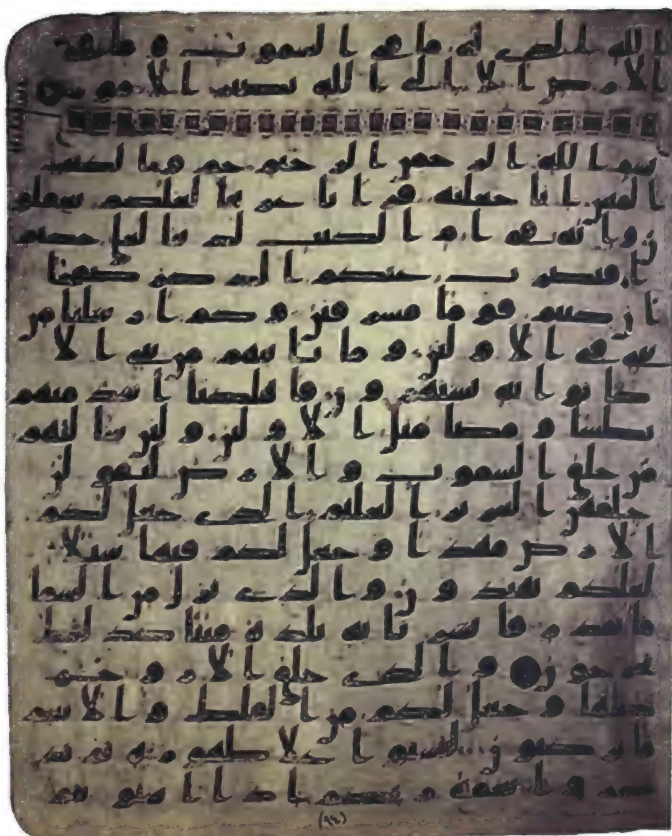 الله الذي له ما في السموت وما في
الارض الا الى الله تصير الامور
بسم الله الرحمن الرحيم حم والكتب
المبين انا جعلنه قرانا عربيا لعلكم تعقلو
ن وانه في ام الكتب لدينا لعلي حكيم
افنضرب عنكم الذكر صفحا
ان كنتم قوما مسرفين وكم ارسلنا من
نبي في الاولين وما ياتيهم من نبي الا
كانوا به يستهزون فاهلكنا اشد منهم
بطشا ومضى مثل الاولين ولين سالتهم
من خلق السموت والارض ليقولن
خلقهن العزيز العليم الذي جعل لكم
الارض مهدا وجعل لكم فيها سبلا
لعلكم تهتدون والذي نزل من السما
ما بقدر فانشرنا به بلدة ميتا كذلك
تخرجون والذي خلق الازوج
كلها وجعل لكم من الفلك والانعم
ما تركبون لتستوا على ظهوره ثم تذ
كروا نعمة ربكم اذا استويتم